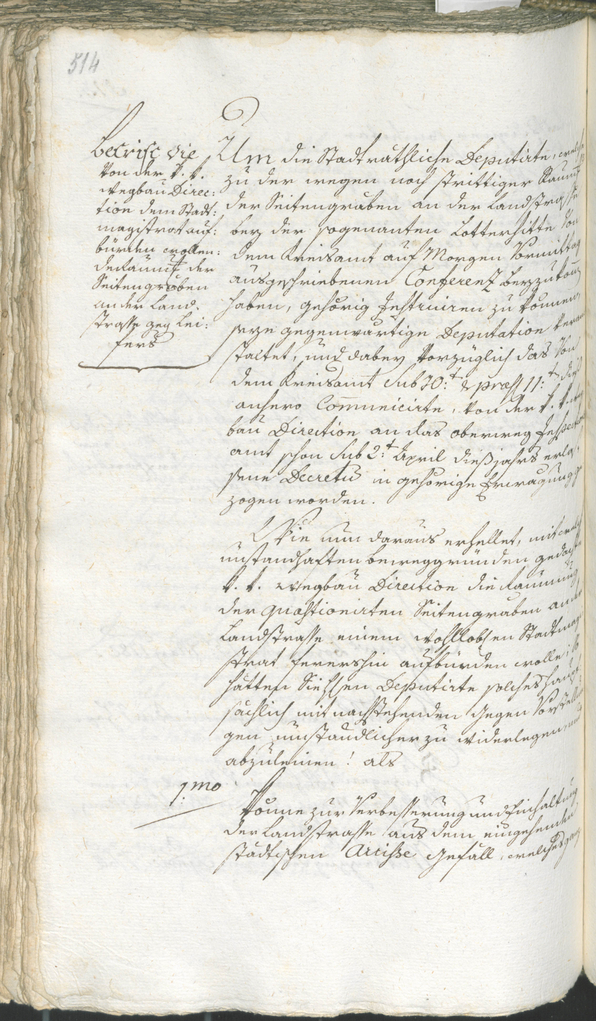 514
Betrift die
von der k. k.
Wegbau Direc-
tion dem Stadt-
magistrat auf-
bürden wollen-
de Raumung der
Seitengraben
an der Land-
strasse geg Lei-
fers
Um die Stadträthliche Deputirte, welche
zu der wegen noch strittiger Raumung
der Seitengraben an der Landstrasse
bey der sogenanten Lotterhitte von
dem Kreisamt auf Morgen Vormittag
ausgeschriebenen Conferenz beyzukommen
haben, gehörig Instruiren zu können,
seye gegenwärtige Deputation veran-
staltet, und dabey vorzüglich das von
dem Kreisamt sub 30:t & præs 11:t
anhero Communicirte, von der k. k. Weg
bau Direction an das oberweg Inspections
amt schon sub 2:t April dieß jahrs erlas-
sene Decretum in gehörige Erwägung ge
zogen worden.
Wie nun daraus erhellet, mit welch
umständhaften beweggründen gedachte
k. k. Wegbau Direction die Raumung
der quæstionirten Seitengraben an der
Landstrasse einem wohllobsen Stadtmagi
strat fernershin aufbürden wolle; So
hätten diessen Deputirte solches haupt
sächlich mit nachstehenden Gegen Vorstellun
gen umständlicher zu widerlegen, und
abzuleinen! als
1.mo
könne zur Verbesserung und Einhaltung
der Landstrasse aus dem eingehenden
städtischen Accisse Gefäll, welches ganz